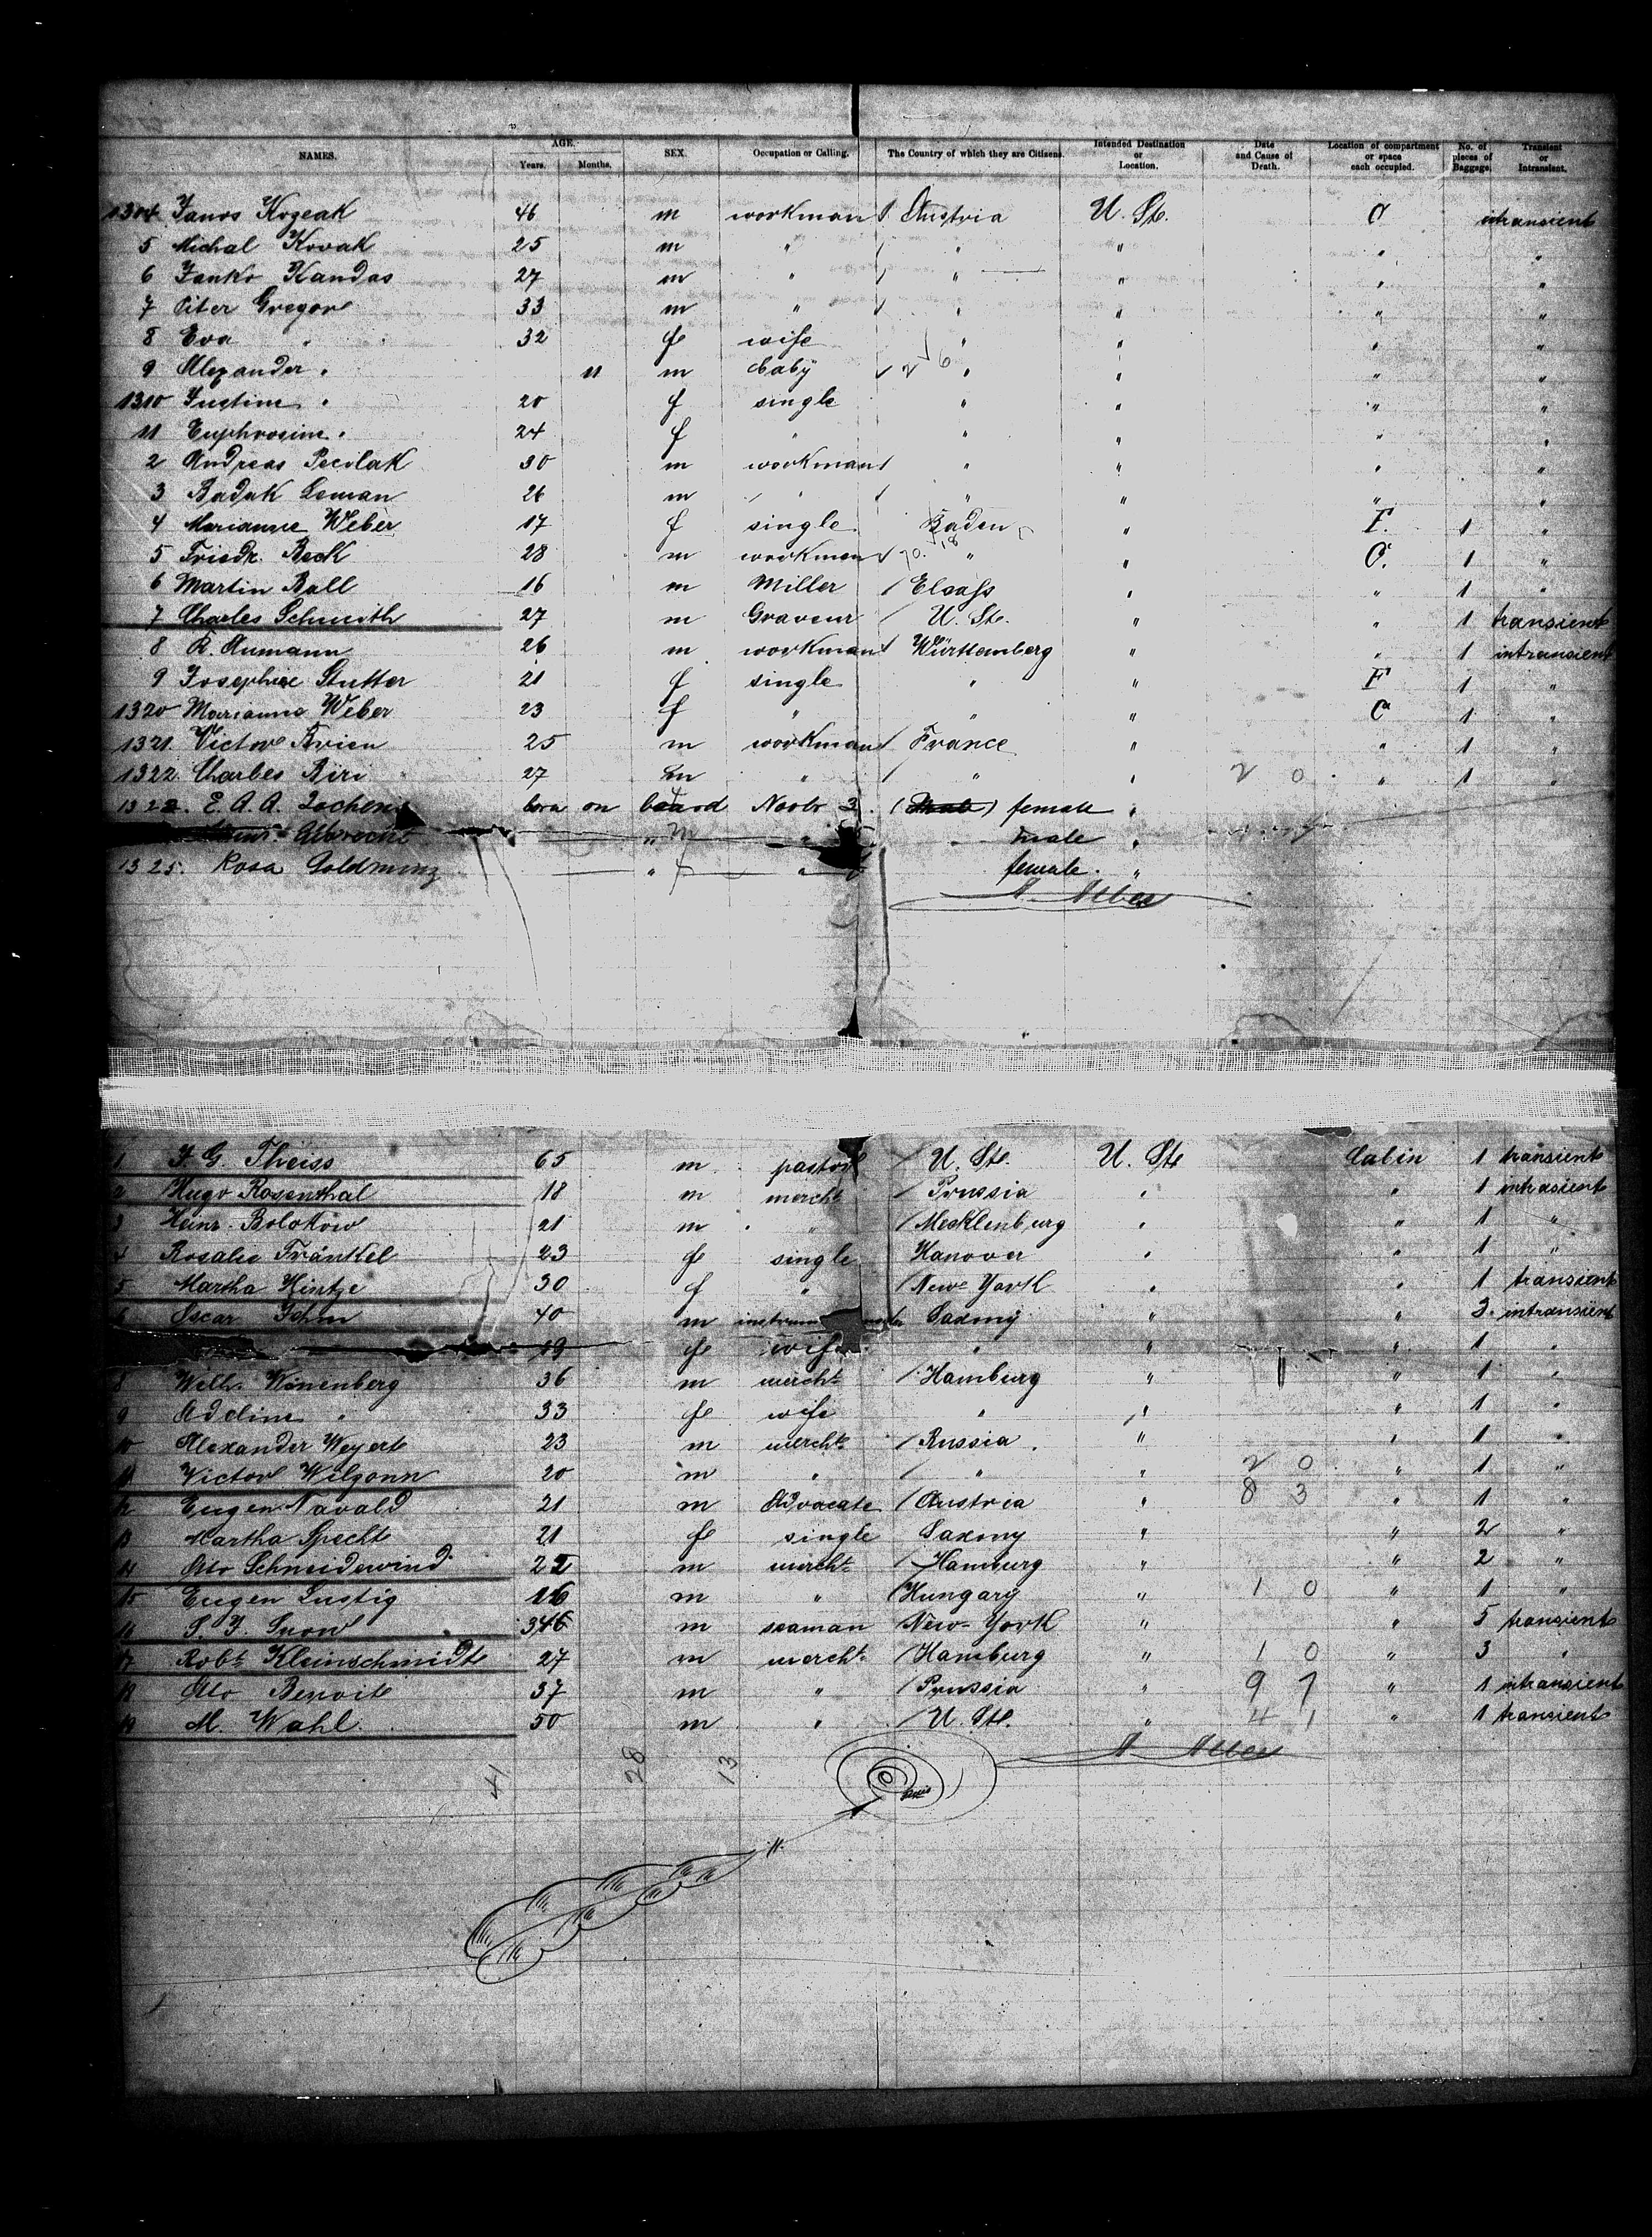 NAMES. AGE. Years. Months. SEX. Occupation or Calling. The Country of which they are Citizens. Intended Destination or Location. Date and Cause of Death. Location of compartment or space each occupied. No. of pieces of Baggage. Transient or Intransient.
1304 Janos Kozeak 46 m workman Austria U. St. C intransient
5 Michal Kovak 25 m " " " " "
6 Janko Kandas 27 m " " " " "
7 Piter Gregor 33 m " " " " "
8 Eva " 32 fe wife " " " "
9 Alexander " 11 m baby 2 6 " " " "
1310 Justine " 20 f single " " " "
11 Euphrosine " 24 f " " " " "
2 Andreas Pecilak 30 m workman " " " "
3 Badak Leman 26 m " " " " "
4 Marianne Weber 17 f single Baden " F. 1 "
5 Friedr. Beck 28 m workman 70. 18 " " C. 1 "
6 Martin Ball 16 m Miller Elsass " " 1 "
7 Charles Schmith 27 m Graveur U. St. " " 1 transient
8 R. Aumann 26 m workman Württemberg " " 1 intransient
9 Josephine Stutter 21 f single " " F 1 "
1320 Marianne Weber 23 f " " " C 1 "
1321. Victor Brien 25 m workman France " " 1 "
1322. Charles Biri 27 m " " " 2 0 " 1 "
132 . E. A. A. born on board Novbr 3. ( ) female "
Albrecht " m " male "
1325. Rosa Goldmunz " f " female. "
A. Albers
1 F. G. Theiss 65 m pastor U. St. U. St. Cabin 1 transient
2 Hugo Rosenthal 18 m mercht Prussia " " 1 intrasient
3 Heinr. Bolokow 21 m " Mecklenburg " " 1 "
4 Rosalie Fränkel 23 fe single Hanover " " 1 "
5 Martha Hintze 30 f " New-York " " 1 transient
6 Oscar Jehm 40 m Saxony " " 3. intransient
19 fe wife " " " 1 "
8 Wilh. Wönenberg 36 m mercht Hamburg " " 1 "
9 Adeline " 33 fe wife " " " 1 "
10 Alexander Weyert 23 m mercht Russia. " " 1 "
11 Victor Wilzonn 20 m " " " 2 0 " 1 "
12 Eugen Navald 21 m Advocate Austria " 8 3 " 1 "
13 Martha Specht 21 fe single Saxony " " 2 "
14 Otto Schneidewind 22 m mercht Hamburg " " 2 "
15 Eugen Lustig 16 m " Hungary " 1 0 " 1 "
16 S. F. Snow 346 m seaman New-York " " 5 transient
17 Robt Kleinschmidt 27 m mercht Hamburg " 1 0 " 3 "
18 Otto Benoit 37 m " Prussia " 9 7 " 1 intransient
19 M. Wahl 50 m " U. St. " 4 1 " 1 transient
41 28 13
A. Albers